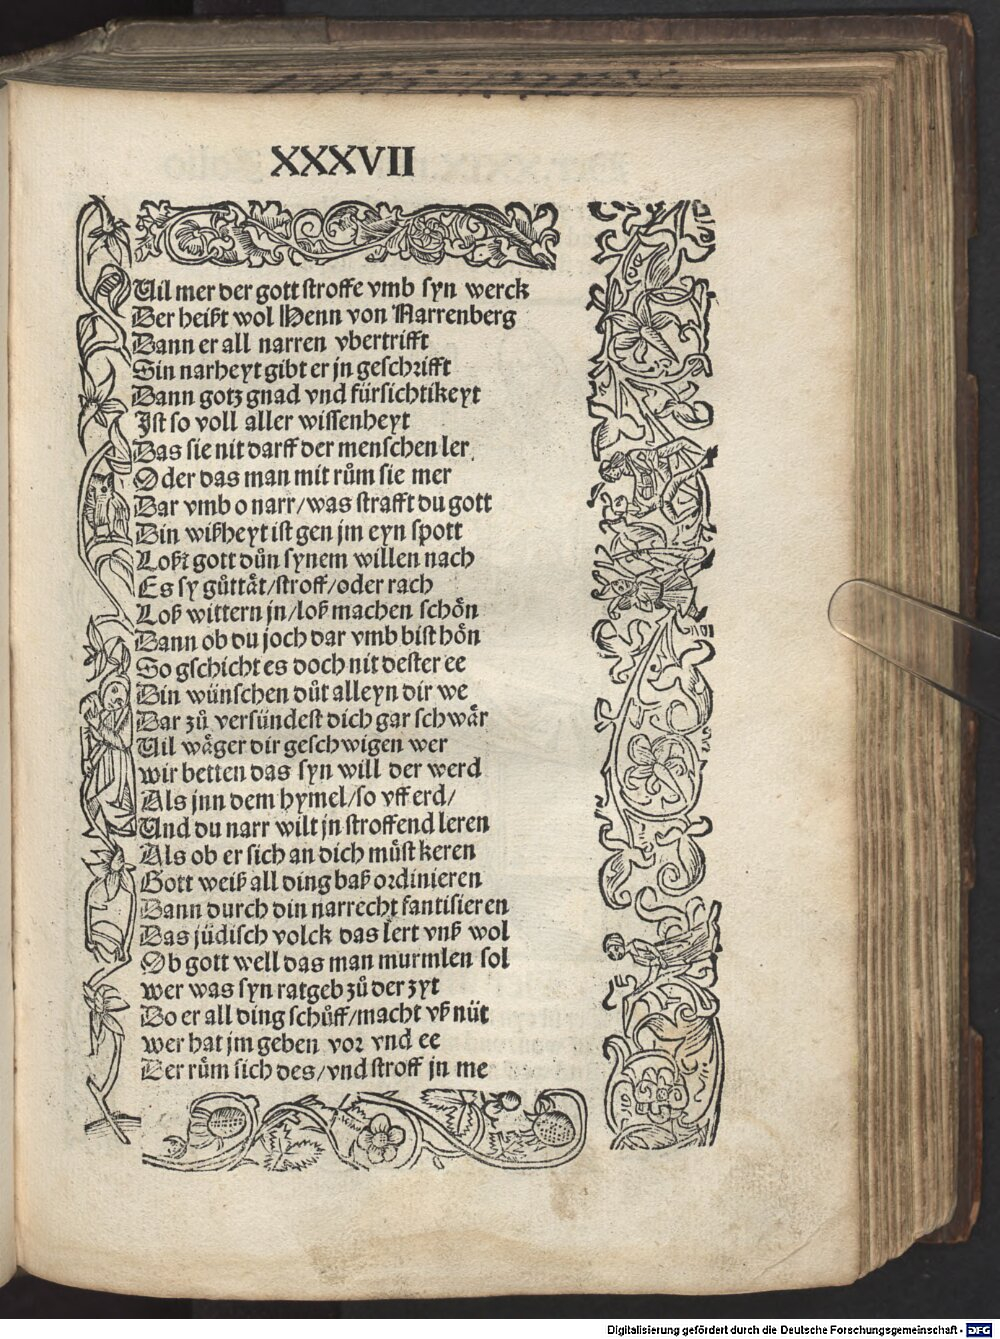 XXXVII
Uil mer der gott stroffe vmb syn werck
Der heißt wol Henn von Narrenberg
Dann er all narren vbertrifft
Sin narheyt gibt er jn geschrifft
Dann gotz gnad vnd fürsichtikeyt
Jst so voll aller wissenheyt
Das sie nit darff der menschen ler
Oder das man mit rům sie mer
Dar vmb o narr/was strafft du gott
Din wißheyt ist gen jm eyn spott
Loßt gott důn synem willen nach
Es sy gůttät/stroff/oder rach
Loß wittern jn/loß machen schön
Dann ob du joch dar vmb bist hön
So gschicht es doch nit dester ee
Din wünschen důt alleyn dir we
Dar zů versündest dich gar schwär
Uil wäger dir geschwigen wer
wir betten das syn will der werd
Als jnn dem hymel/so vff erd/
Und du narr wilt jn stroffend leren
Als ob er sich an dich můst keren
Gott weiß all ding baß ordinieren
Dann durch din narrecht fantisieren
Das jüdisch volck das lert vnß wol
Ob gott well das man murmlen sol
wer was syn ratgeb zů der zyt
Do er all ding schůff/macht vß nüt
wer hat jm geben vor vnd ee
Der rům sich des/vnd stroff jn me
Digitalisierung gefördert durch die Deutsche Forschungsgemeinschaft - DFG